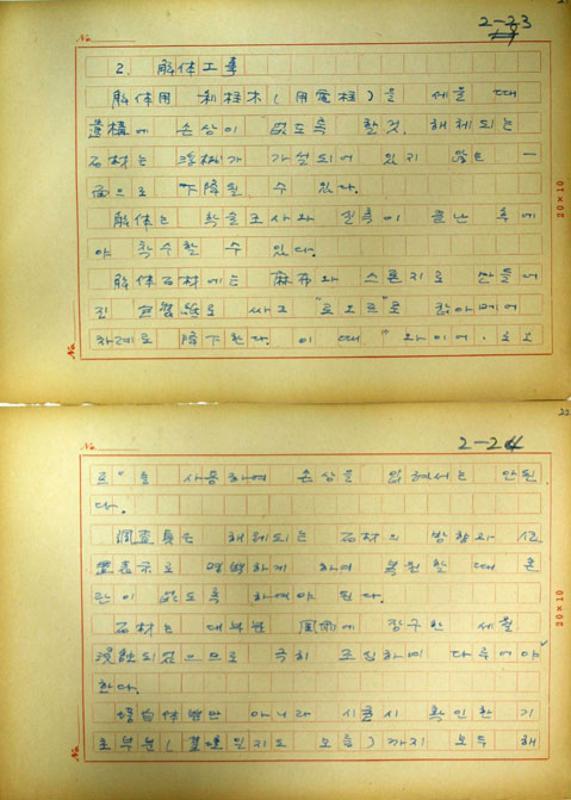 2-23
No.
2. 解体工事
解体用 利柱木(用電柱)을 세울 때
遺構에 손상이 없도록 할것. 해체되는
石材는 浮材가 가설되어 있지 않은 一
面으로 下降될 수 있다.
解体는 학술조사와 실측이 끝난 후에
야 착수할 수 있다.
解体石材에는 麻布와 스폰지로 만들어
진 로 싸고 "로오프"로 잡아메어
차례로 降下한다. 이 때 "와이어·로오
20×10
No.
22
2-24
No.
프"를 사용하여 손상을 입혀서는 안된
다.
調査員은 해체되는 石材의 방향과 位
置表示로 明確하게 하여 복원할 때 혼
란이 없도록 하여야 된다.
石材는 대부분 風雨에 장구한 세월
浸蝕되었으므로 극히 조심하여 다루어야
한다.
塔自体뿐만 아니라 시굴시 확인한 기
초부분( 일지도 모름)까지 모두 해
20×10
No.